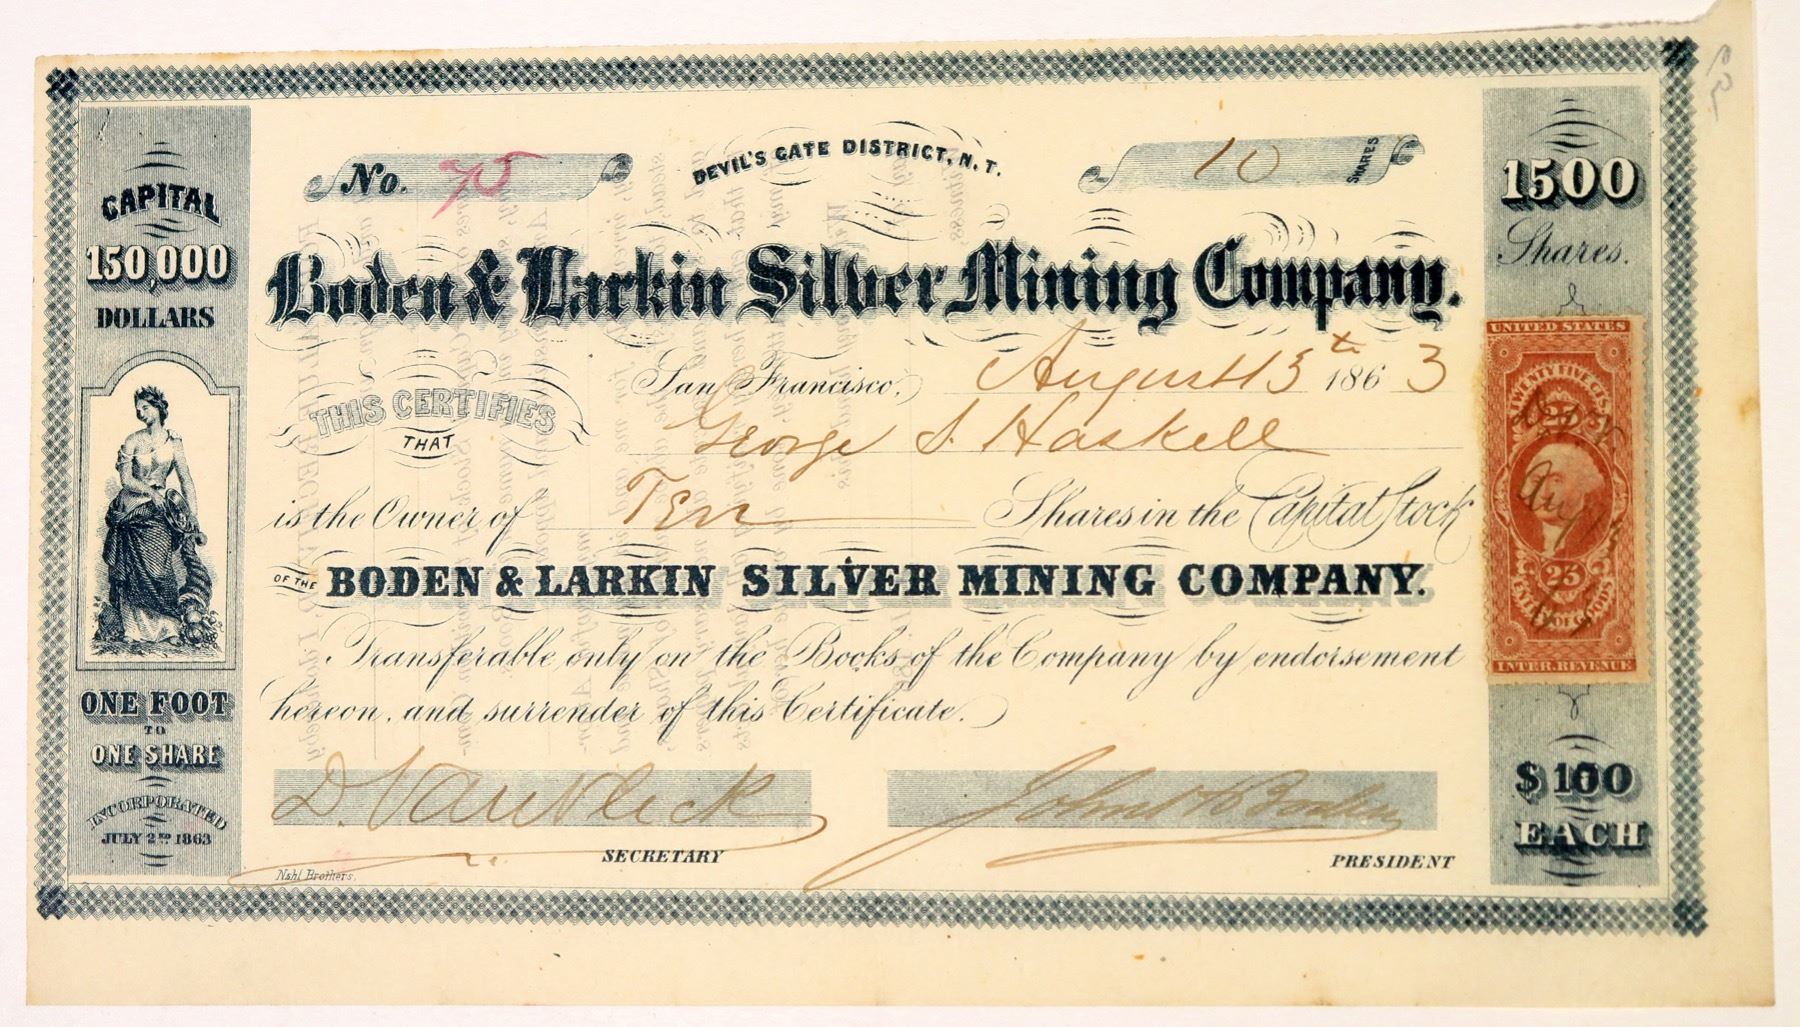 CAPITAL
150,000
DOLLARS
ONE FOOT
TO
ONE SHARE
INCORPORATED
JULY 2ND 1863
No. 75
DEVIL'S GATE DISTRICT, N.T.
10 SHARES
Boden & Larkin Silver Mining Company.
San Francisco, August 13th 1863
THIS CERTIFIES
THAT
George S. Haskell
is the Owner of Ten Shares in the Capital Stock
OF THE BODEN & LARKIN SILVER MINING COMPANY.
Transferable only on the Books of the Company by endorsement
hereon, and surrender of this Certificate.
D. Van Vleck
SECRETARY
John H Boden
PRESIDENT
Nahl Brothers.
1500
Shares.
UNITED STATES
TWENTY FIVE CTS.
25
Aug 13
25
INTER. REVENUE
$100
EACH